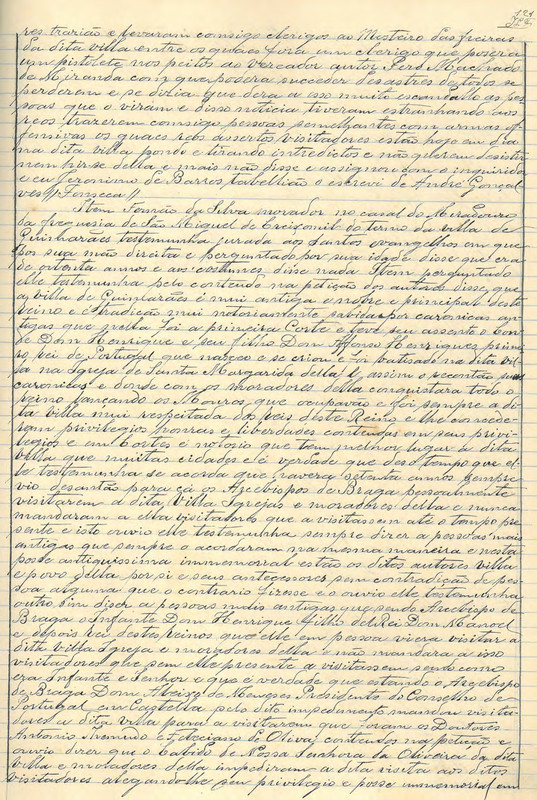 res trarião e levaram comsigo clerigos ao Mosteiro das freiras
da dita villa entre os quaes fora um clerigo que poséra
um pistolete nos peitos ao vereador autor Pero Machado
de Miranda com que podéra succeder desastres de todos se
perderem e se dizia que dera a isso muito escandallo as pes-
soas que o viram e disso noticia tiveram estranhando aos
reos trazerem comsigo pessoas semelhantes com armas of-
fensivas os quaes reos assertos visitadores estão hoje em dia
na dita villa pondo e tirando interdictos e não querem desistir
nem hir-se della e mais não disse e assignou com o inquiridor
e eu Jeronimo de Barros tabellião o escrevi de André Gonçal-
ves // Fonseca //
Item Fernão da Silva morador no casal do Meradouro
da freguesia de São Miguel de Creixomil do termo da villa de
Guimarães testemunha jurada aos Santos evangelhos em que
pôz sua mão direita e perguntado por sua idade disse que era
de oitenta annos e aos costumes disse nada Item perguntado
elle testemunha pelo contendo na petição dos autores disse que
a villa de Guimarães é mui antiga e nobre e principal deste
reino e é tradição mui notoriamente sabida por caronicas an-
tigas que nella foi a primeira Corte e teve seu assento o Con-
de Dom Henrique e seu filho Dom Affonso Henriques primei-
ro rei de Portugal que nasceo e se criou e foi batisado na dita vil-
la na Igreja de Santa Margarida della e assim o recontão suas
caronicas e donde com os moradores della conquistara todo o
reino lançando os Mouros que ocupavão e foi sempre a di-
ta villa mui respeitada dos reis deste Reino e lhe concede-
ram privilegios honras e liberdades contendas em seus privi-
legios e em Cortes é notoio que tem melhor lugar a dita
villa que muitas cidades e é verdade que desd tempo que el-
le testemunha se acorda que havera setenta annos sempre
vio desantão para cá os Arcebispos de Braga pessoalmente
visitarem a dita Villa Igrejas e moradores della e nunca
mandaram a ella visitadores que a visitassem até o tempo pre-
sente e isto ouvio elle testemunha sempre dizer a pessoas mais
antigas que sempre o acordaram na mesma maneira e nesta
posse antiquissima immemorial estão os ditos autores villa
e povo della por si e seus antecessores sem contradição de pes-
soa alguma que o contrario fizesse e o ouvio elle testemunha
outro sim dizer a pessoas mais antigas que sendo Arcebispo de
Braga o Infante Dom Henrique filho del Rei Dom Manoel
e depois rei destes reinos que elle em pessoa viera visitar a
dita Villa Igreja e moradores della e não mandara a isso
visitadores que sem elle presente a visitassem sendo como
era Infante e Senhor e que é verdade que estando o Arcebispo
de Braga Dom Aleixo de Meneses Presidente do Conselho de
Portugal em Castella pelo dito impedimento mandou visita-
dores a dita villa para a visitarem que foram os Doutores
Antonio e Feleciano de Oliva contendos na petição e
ouvio dizer que o Cabido de Nossa Senhora da Oliveira da dita
villa e moradores della impediram a dita visita aos ditos
visitadores alegando-lhe seu privilegio e posse immemorial em